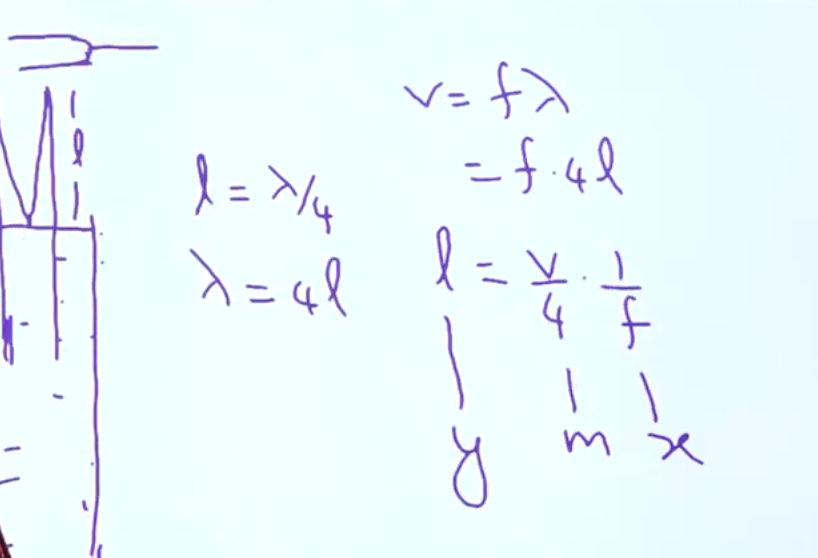 l
l = λ/4
λ = 4l
v = fλ
= f·4l
l = v/4 · 1/f
y m x